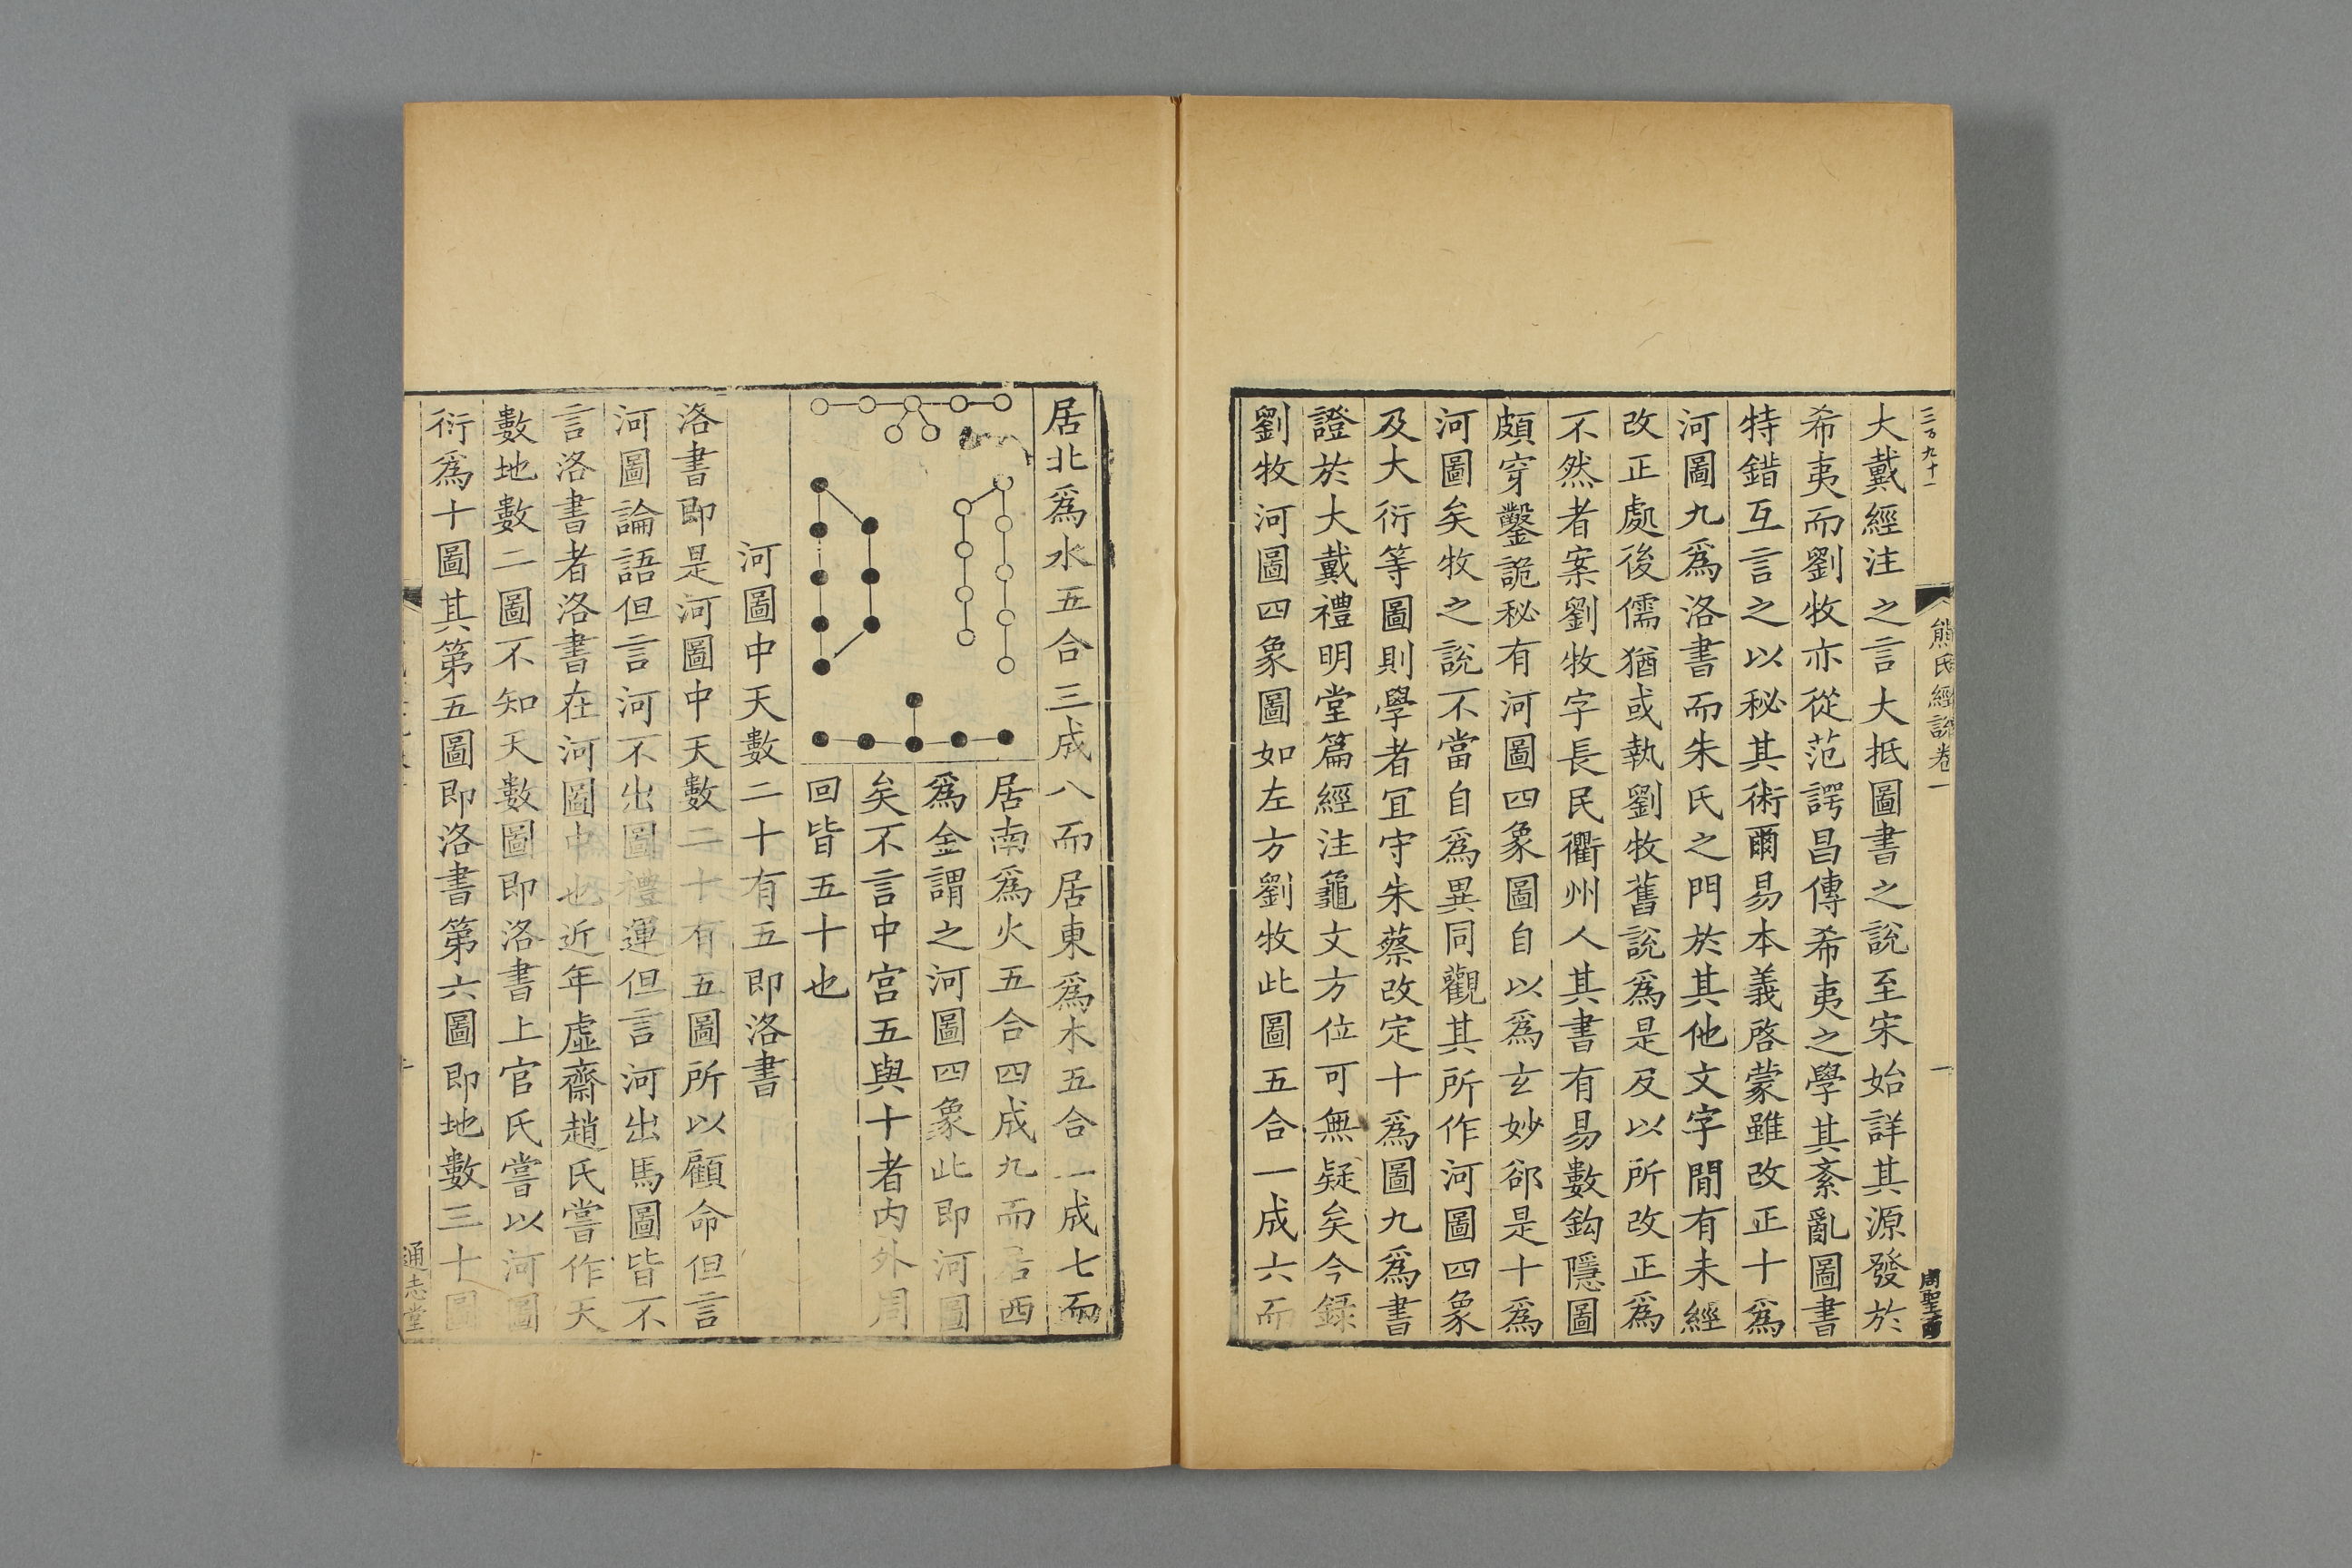 三百九十一
熊氏經說卷一
一
大戴經注之言大抵圖書之說至宋始詳其源發於
希夷而劉牧亦從范諤昌傳希夷之學其紊亂圖書
特錯互言之以秘其術爾易本義啓蒙雖改正十爲
河圖九爲洛書而朱氏之門於其他文字閒有未經
改正處後儒猶或執劉牧舊說爲是及以所改正爲
不然者案劉牧字長民衢州人其書有易數鈎隱圖
頗穿鑿詭秘有河圖四象圖自以爲玄妙郤是十爲
河圖矣牧之說不當自爲異同觀其所作河圖四象
及大衍等圖則學者宜守朱蔡改定十爲圖九爲書
證於大戴禮明堂篇經注龜文方位可無疑矣今錄
劉牧河圖四象圖如左方劉牧此圖五合一成六而
居北爲水五合三成八而居東爲木五合二成七而
居南爲火五合四成九而居西
爲金謂之河圖四象此即河圖
矣不言中宮五與十者內外周
回皆五十也
河圖中天數二十有五即洛書
洛書即是河圖中天數二十有五圖所以顧命但言
河圖論語但言河不出圖禮運但言河出馬圖皆不
言洛書者洛書在河圖中也近年虛齋趙氏嘗作天
數地數二圖不知天數圖即洛書上官氏嘗以河圖
衍爲十圖其第五圖即洛書第六圖即地數三十圖
通志堂